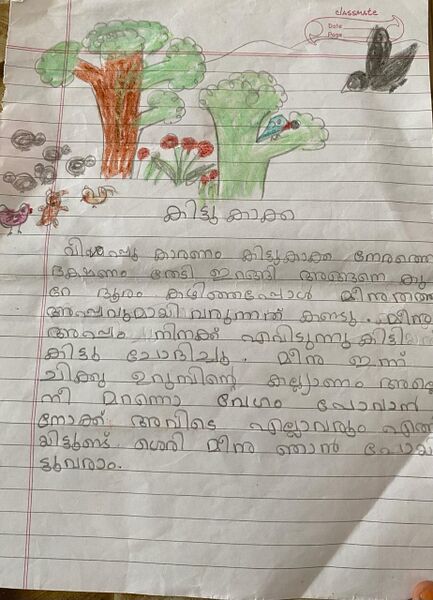 classmate
Date
Page
കിട്ടു കാക്ക
വിശപ്പു കാരണം കിട്ടുകാക്ക നേരത്തെ
ഭക്ഷണം തേടി ഇറങ്ങി അങ്ങനെ കു
റേ ദൂരം കഴിഞ്ഞപ്പോൾ മീനുതത്ത
അപ്പവുമായി വരുന്നത് കണ്ടു. മീനു
അപ്പം നിനക്ക് എവിടുന്നു കിട്ടി
കിട്ടു ചോദിച്ചു. മീനു ഇന്ന്
ചിക്കു ഉറുമ്പിന്റെ കല്യാണം അല്ലെ
നീ മറന്നൊ വേഗം പോവാൻ
നോക്ക് അവിടെ എല്ലാവരും എത്തി
യിട്ടുണ്ട്. ശെരി മീനു ഞാൻ പോയി
ട്ടുവരാം.